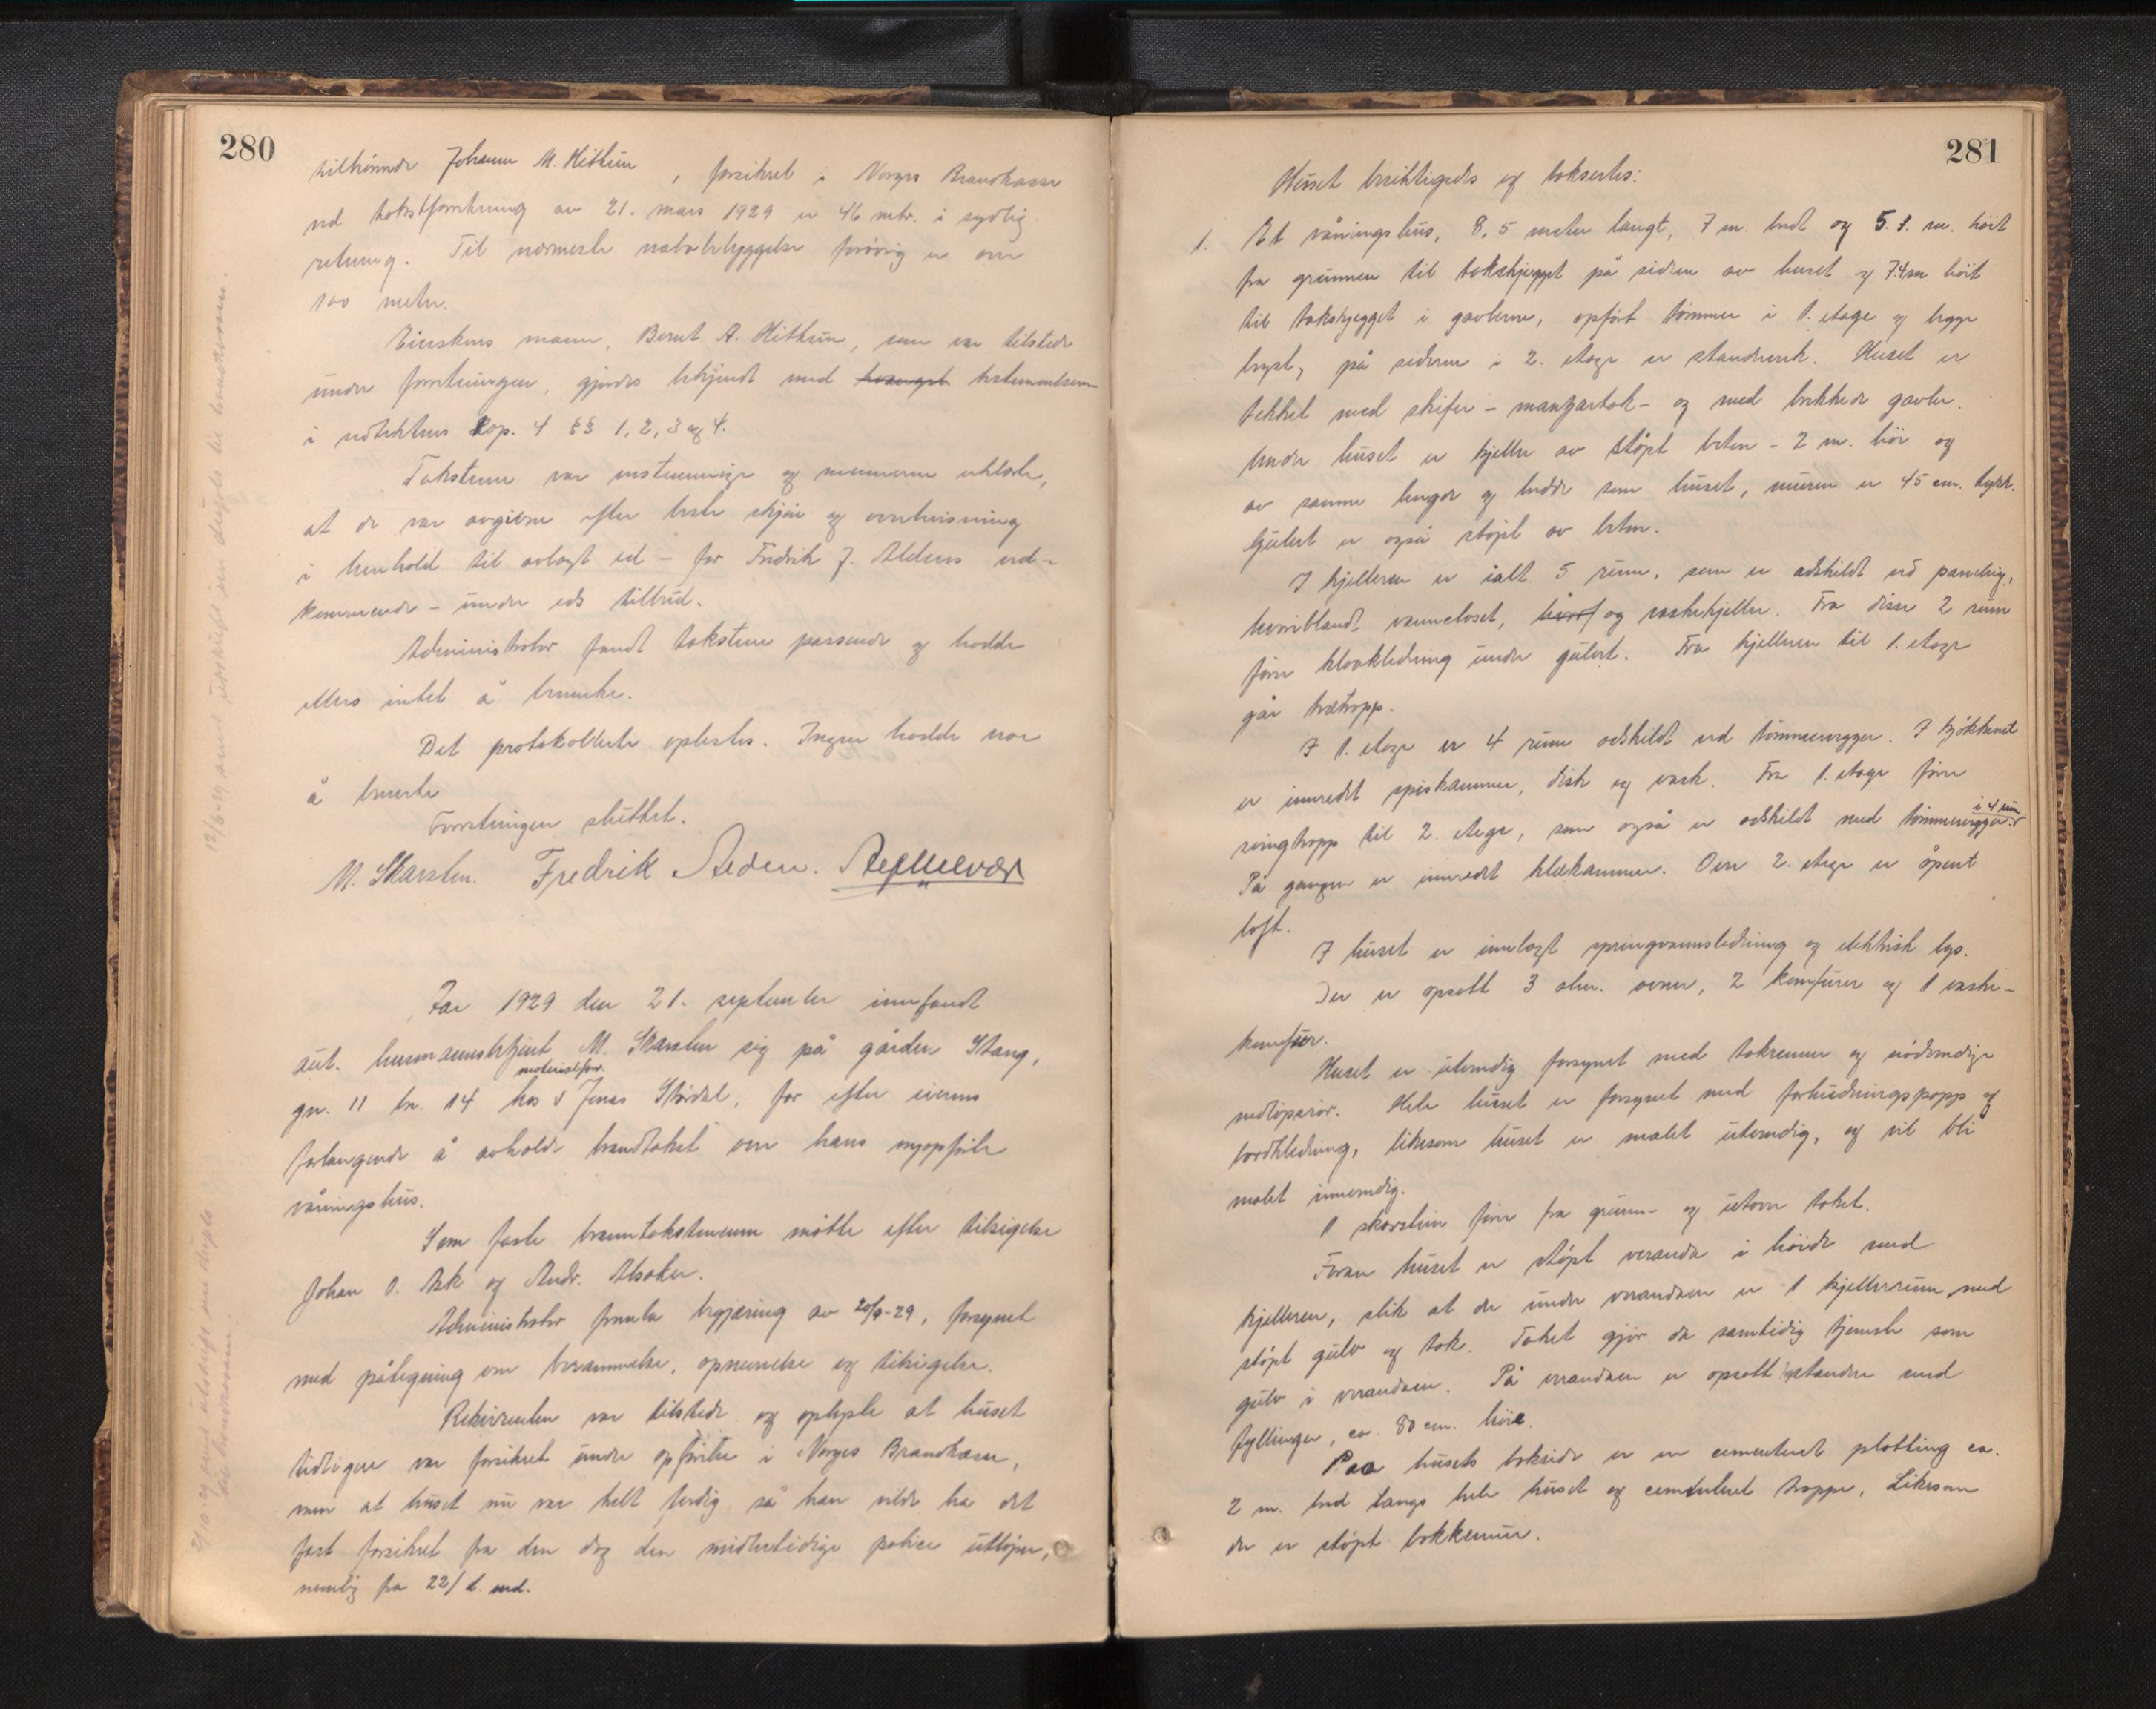 280
tilhørende Johanne M. Hithun, forsikret i Norges Brandkasse
ved takstforretning av 21. mars 1929 er 46 mtr. i sydlig
retning. Til nærmeste nabobebyggelse forøvrig er over
100 meter.
Eierskens mann, Bernt A. Hithun, som var tilstede
under forretningen, gjordes bekjendt med bestemmelsene
i vedtektenes kap. 4 §§ 1, 2, 3 og 4.
Takstene var enstemmige og mennene erklærte,
at de var avgivne efter beste skjøn og overbevisning
i henhold til avlagt ed - for Fredrik J. Aldens ved-
kommende - under eds tilbud.
Administrator fandt takstene passende og hadde
ellers intet å bemerke.
Det protokollerte oplestes. Ingen hadde noe
å bemerke
Forretningen sluttet.
M. Skarsten. Fredrik Alden.
Aar 1929 den 21. september innfandt
aut. lensmannsbetjent M. Skarsten sig på gården Stang,
gn. 11 bn. 14 hos materialforv. Jonas Stördal, for efter eierens
forlangende å avholde brandtakst over hans nyopførte
våningshus.
Som faste branntakstmenn møtte efter tilsigelse
Johan O. Ask og Andr. Alsaker.
Administrator fremla begjæring av 20/9-29, forsynet
med påtegning om berammelse, opnevnelse og tilsigelse.
Rekvirenten var tilstede og oplyste at huset
tidligere var forsikret under opførelse i Norges Brandkasse,
men at huset nu var helt ferdig så han vilde ha det
fast forsikret fra den dag den midlertidige police utløper,
nemlig fra 22/ d. md.
281
Huset besiktigedes og takseertes:
1. Et våningshus, 8,5 meter langt, 7 m. bredt og 5.1. m. høit
fra grunnen til takskjegget på siden av huset og 7.4 m høit
til takskjegget i gavlene, opført tømmer i 1. etage og begge
bryst, på siderne i 2. etage er standverk. Huset er
tekket med skifer - mansartak - og med brekkede gavler.
Under huset er kjeller av støpt beton - 2 m. høi og
av samme lengde og bredde som huset, muren er 45 cm. tykk.
Gulvet er også støpt av beton.
I kjelleren er ialt 5 rum, som er adskildt ved paneling,
hvoriblandt vannclosett, og vaskekjeller. Fra disse 2 rum
fører kloakledning under gulvet. Fra kjelleren til 1. etage
går trætrapp.
I 1. etage er 4 rum adskildt ved tømmervegger. I kjøkkenet
er innredet spiskammer, disk og vask. Fra 1. etage fører
svingtrapp til 2. etage, som også er adskildt med tømmervegger i 4 rum.
På gangen er innredet klækammer. Over 2. etage er åpent
loft.
I huset er innlagt springvannsledning og elektrisk lys.
Der er opsatt 3 alm. ovner, 2 komfurer og 1 vaske-
komfur.
Huset er utvendig forsynet med takrenner og nødvendige
nedløpsrør. Hele huset er forsynet med forhudningspapp og
bordkledning, likesom huset er malet utvendig, og vil bli
malet innvendig.
1 skorstein fører fra grunn- og utover taket.
Foran huset er støpt veranda i høide med
kjelleren, slik at der under verandaen er 1 kjellerrum med
støpt gulv og tak. Taket gjør da samtidig tjeneste som
gulv i verandaen. På verandaen er opsatt standere med
fyllinger, ca. 80 cm. høie.
Paa husets bakside er en cementeret platting ca.
2 m. bred langs hele huset og cementeret trappe, Likesom
der er støpt bakkemur.